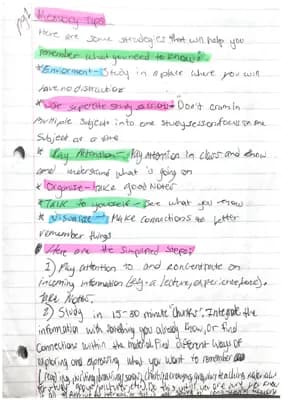 pg1
Memory Tips
Here are some strategies that will help you
remember what you need to know:
* Enviorment - Study in a place where you will
have no distraction
* Use seperate study sessions - Don't cram in
multiple subjects into one study session focus on one
subject at a time
* Pay Attention - Pay attention in class and know
and understand what is going on
* Organize - take good notes
* Talk to yourself - See what you know
* Visualize - Make connections to better
remember things
Here are the simplified steps:
1) Pay attention to and concentrate on
incoming information (eg. a lecture, experience, ).
Take Notes.
2) Study in 15-30 minute "chunks". Integrate the
information with something you already know, or find
connections within the material. Find different ways of
exploring and expressing what you want to remember
(reading, writing, drawing, teaching